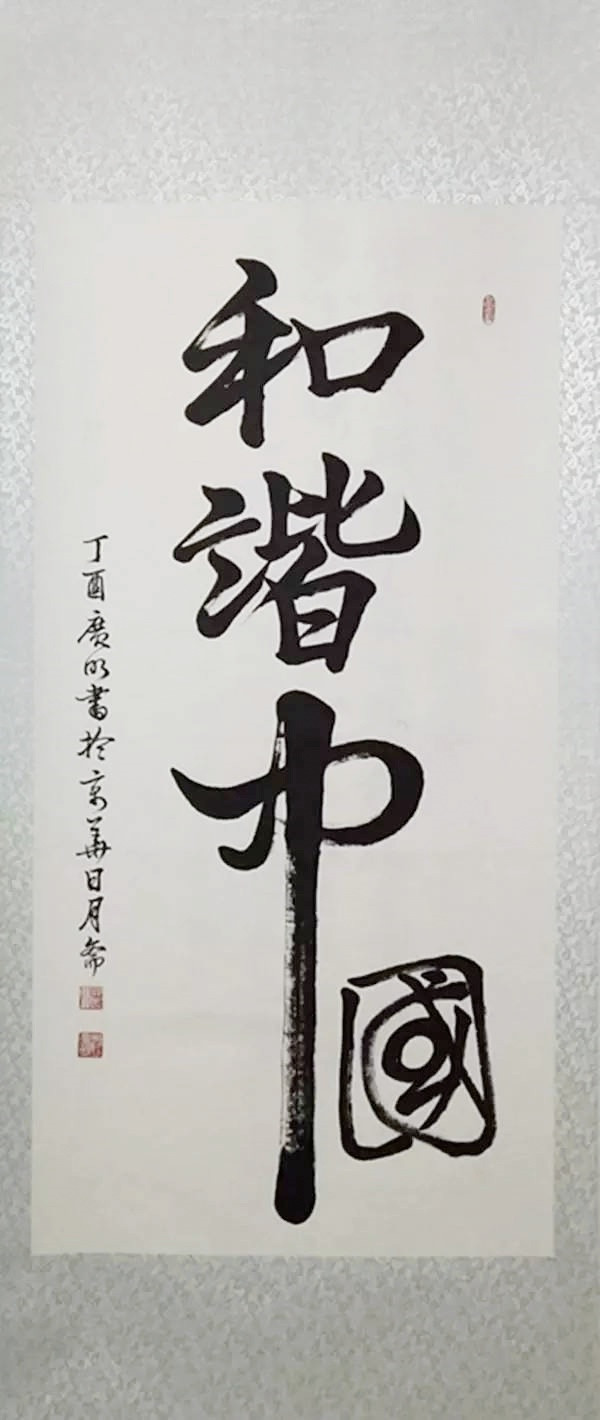 和諧中國
丁酉廣明書於京華日月齋